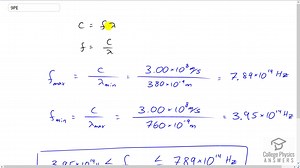 SPE
C = fλ
f = C/λ
f max = C/λ min = 3.00×10⁸ m/s / 380×10⁻⁹ m = 7.89×10¹⁴ Hz
f min = C/λ max = 3.00×10⁸ m/s / 760×10⁻⁹ m = 3.95×10¹⁴ Hz
3.95×10¹⁴ < f < 7.89×10¹⁴ Hz
College Physics
ANSWERS